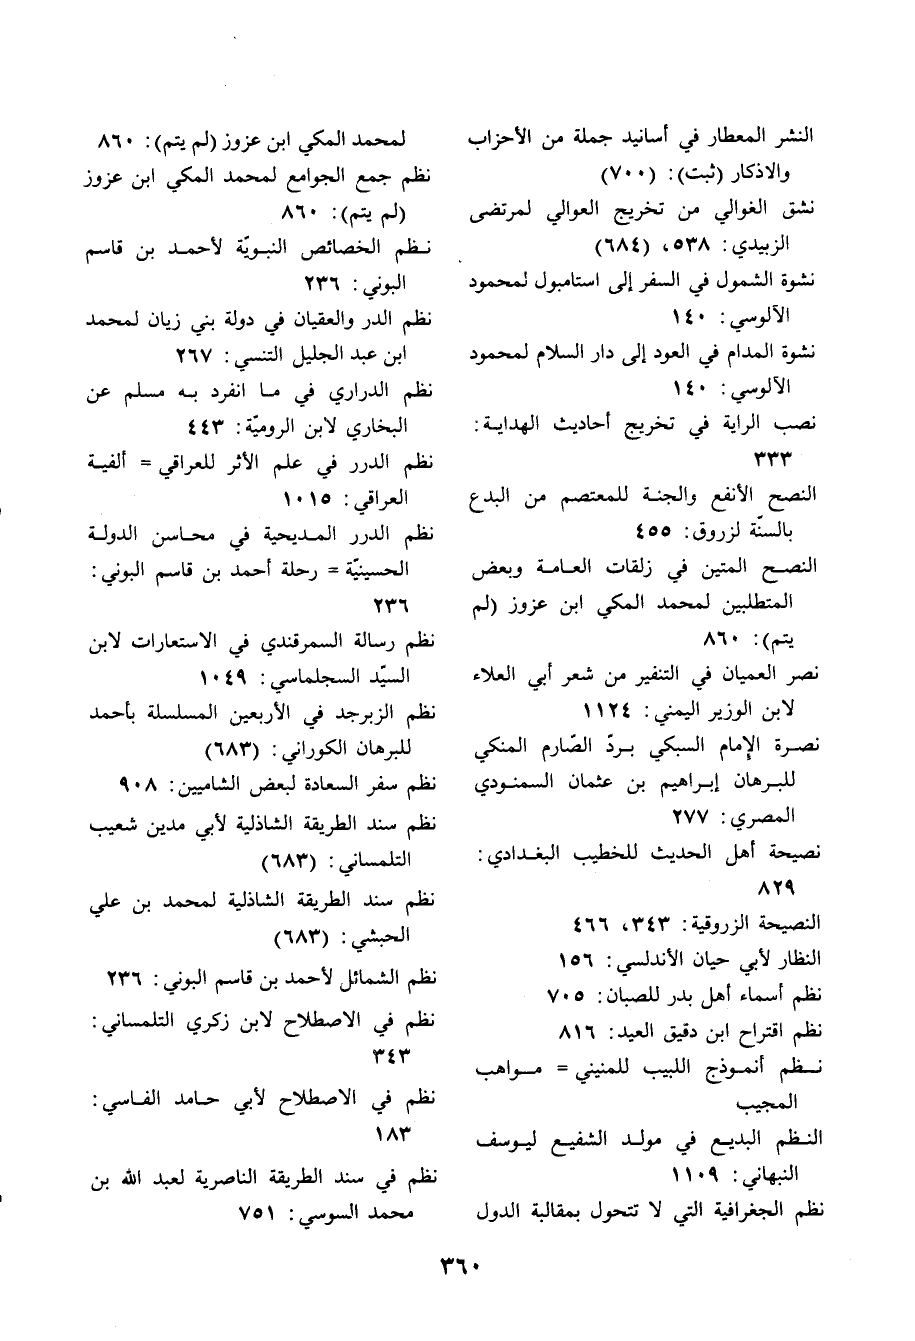 النشر المعطار في أسانيد جملة من الأحزاب
والاذكار (ثبت): (٧٠٠)
نشق الغوالي من تخريج العوالي لمرتضى
الزبيدي: ٥٣٨، (٦٨٤)
نشوة الشمول في السفر إلى استامبول لمحمود
الآلوسي: ١٤٠
نشوة المدام في العود إلى دار السلام لمحمود
الآلوسي: ١٤٠
نصب الراية في تخريج أحاديث الهداية:
٣٣٣
النصح الأنفع والجنة للمعتصم من البدع
بالسنّة لزروق: ٤٥٥
النصح المتين في زلقات العامة وبعض
المتطلبين لمحمد المكي ابن عزوز (لم
يتم): ٨٦٠
نصر العميان في التنفير من شعر أبي العلاء
لابن الوزير اليمني: ١١٢٤
نصرة الإمام السبكي بردّ الصّارم المنكي
للبرهان إبراهيم بن عثمان السمنودي
المصري: ٢٧٧
نصيحة أهل الحديث للخطيب البغدادي:
٨٢٩
النصيحة الزروقية: ٣٤٣، ٤٦٦
النظار لأبي حيان الأندلسي: ١٥٦
نظم أسماء أهل بدر للصبان: ٧٠٥
نظم اقتراح ابن دقيق العيد: ٨١٦
نظم أنموذج اللبيب للمنيني = مواهب
المجيب
النظم البديع في مولد الشفيع ليوسف
النبهاني: ١١٠٩
نظم الجغرافية التي لا تتحول بمقالبة الدول
لمحمد المكي ابن عزوز (لم يتم): ٨٦٠
نظم جمع الجوامع لمحمد المكي ابن عزوز
(لم يتم): ٨٦٠
نظم الخصائص النبويّة لأحمد بن قاسم
البوني: ٢٣٦
نظم الدر والعقيان في دولة بني زيان لمحمد
ابن عبد الجليل التنسي: ٢٦٧
نظم الدراري في ما انفرد به مسلم عن
البخاري لابن الروميّة: ٤٤٣
نظم الدرر في علم الأثر للعراقي = ألفية
العراقي: ١٠١٥
نظم الدرر المديحية في محاسن الدولة
الحسينيّة = رحلة أحمد بن قاسم البوني:
٢٣٦
نظم رسالة السمرقندي في الاستعارات لابن
السيّد السجلماسي: ١٠٤٩
نظم الزبرجد في الأربعين المسلسلة بأحمد
للبرهان الكوراني: (٦٨٣)
نظم سفر السعادة لبعض الشاميين: ٩٠٨
نظم سند الطريقة الشاذلية لأبي مدين شعيب
التلمساني: (٦٨٣)
نظم سند الطريقة الشاذلية لمحمد بن علي
الحبشي: (٦٨٣)
نظم الشمائل لأحمد بن قاسم البوني: ٢٣٦
نظم في الاصطلاح لابن زكري التلمساني:
٣٤٣
نظم في الاصطلاح لأبي حامد الفاسي:
١٨٣
نظم في سند الطريقة الناصرية لعبد الله بن
محمد السوسي: ٧٥١
٣٦٠